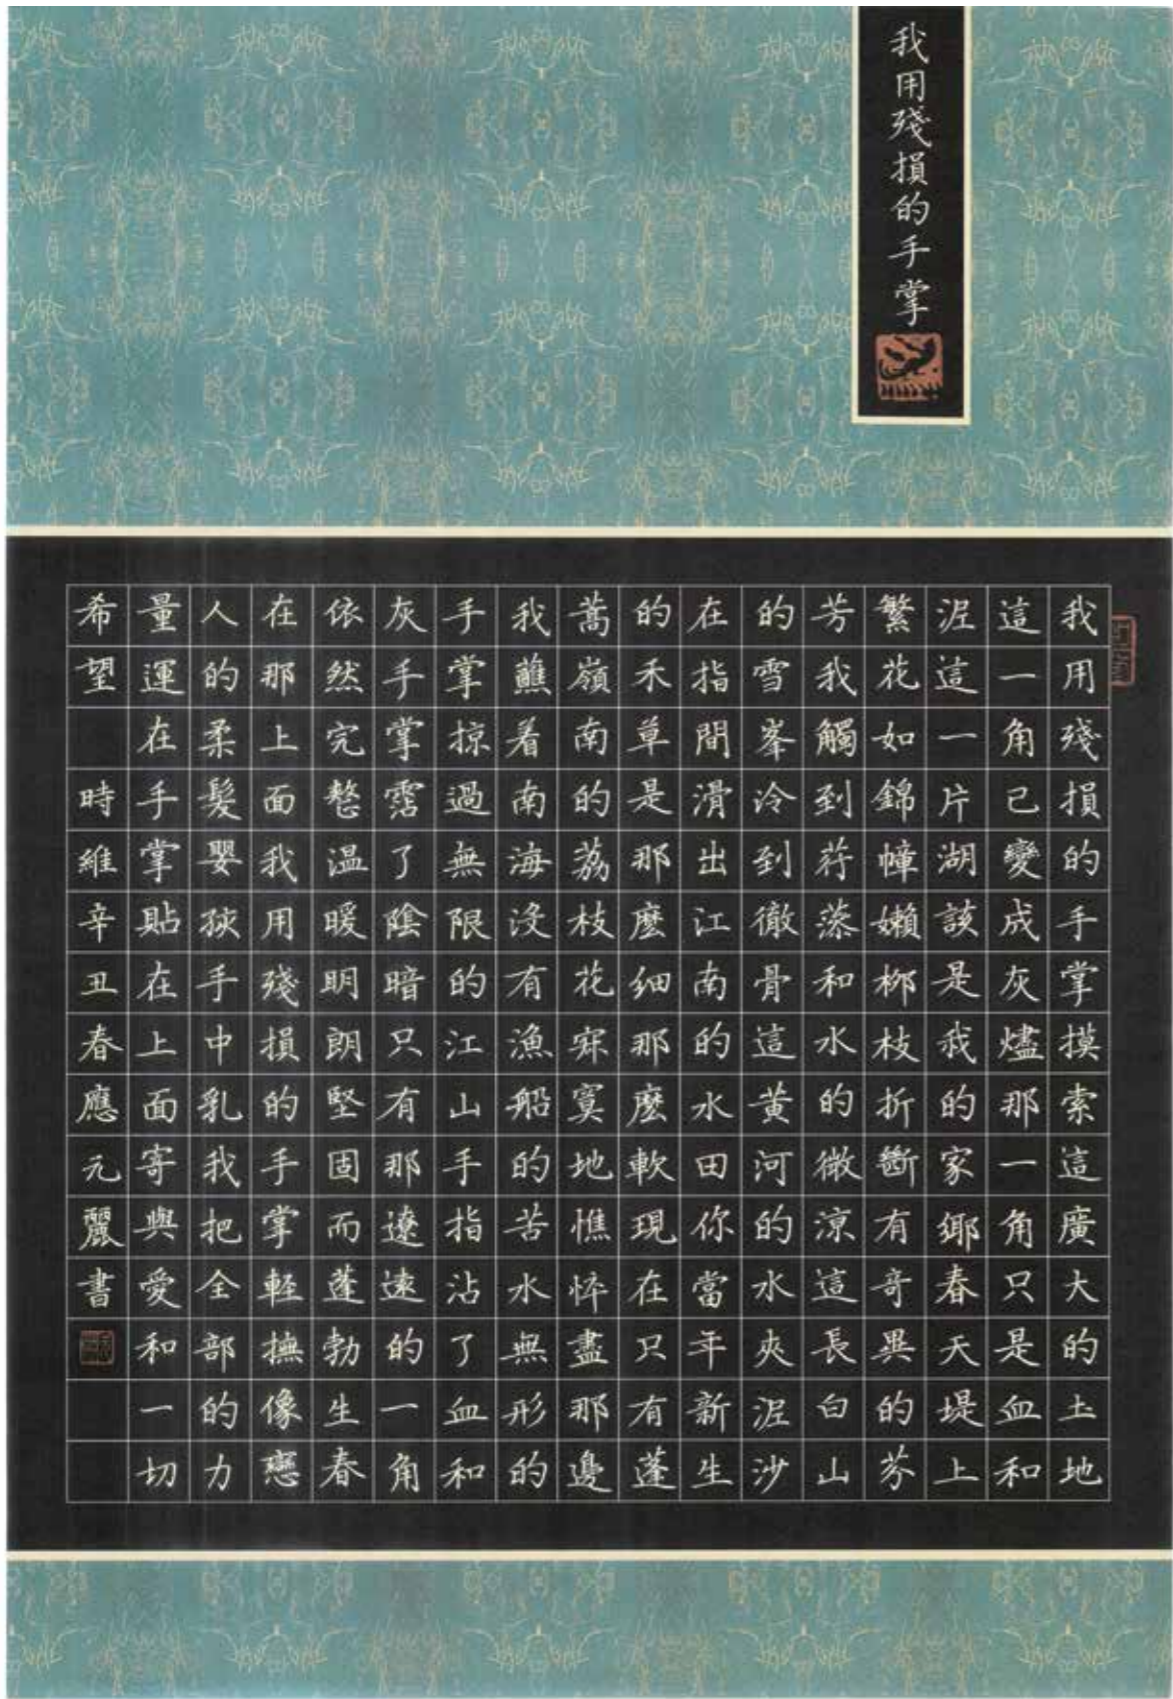 我用殘損的手掌
我用殘損的手掌摸索這廣大的土地
這一角已變成灰燼那一角只是血和
泥這一片湖該是我的家鄉春天堤上
繁花如錦幛嫩柳枝折斷有奇異的芬
芳我觸到荇藻和水的微涼這長白山
的雪峯冷到徹骨這黃河的水夾泥沙
在指間滑出江南的水田你當年新生
的禾草是那麼細那麼軟現在只有蓬
蒿嶺南的荔枝花寂寞地憔悴盡那邊
我蘸着南海沒有漁船的苦水無形的
手掌掠過無限的江山手指沾了血和
灰手掌霑了陰暗只有那遼遠的一角
依然完整溫暖明朗堅固而蓬勃生春
在那上面我用殘損的手掌輕撫像戀
人的柔髮嬰孩手中乳我把全部的力
量運在手掌貼在上面寄與愛和一切
希望 時維辛丑春應元麗書